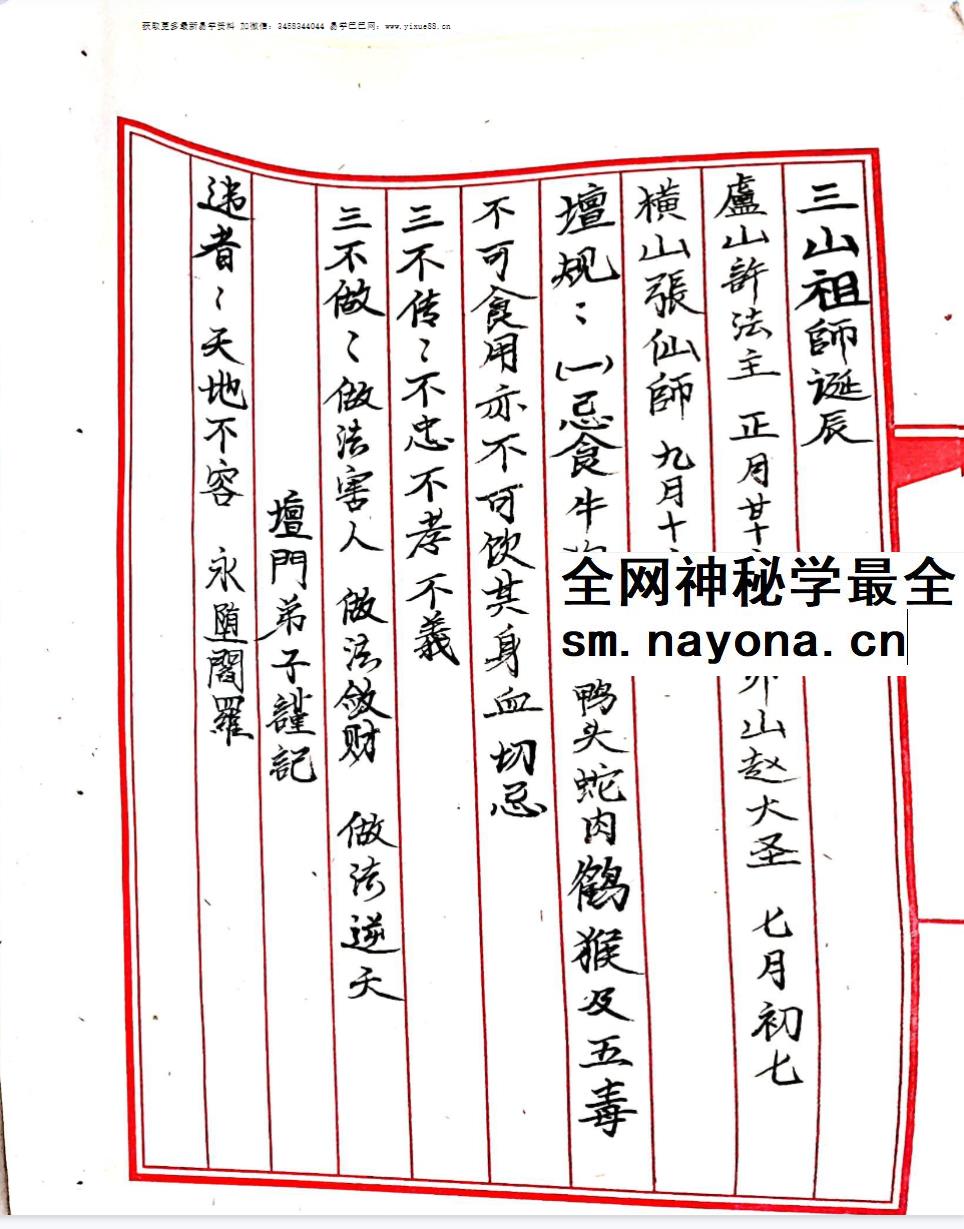 获取更多最新易学资料 加微信：3458344044 易学巴巴网：www.yixue88.cn
三山祖師诞辰
盧山許法主 正月廿十 山赵大圣 七月初七
横山張仙師 九月十
壇规：（一）忌食牛 鸭头蛇肉鹤猴及五毒
不可食用亦不可饮其身血切忌
三不传：不忠不孝不義
三不做：做法害人 做法敛财 做法逆天
壇門弟子謹記
违者：天地不容 永堕閻羅
全网神秘学最全
sm.nayona.cn